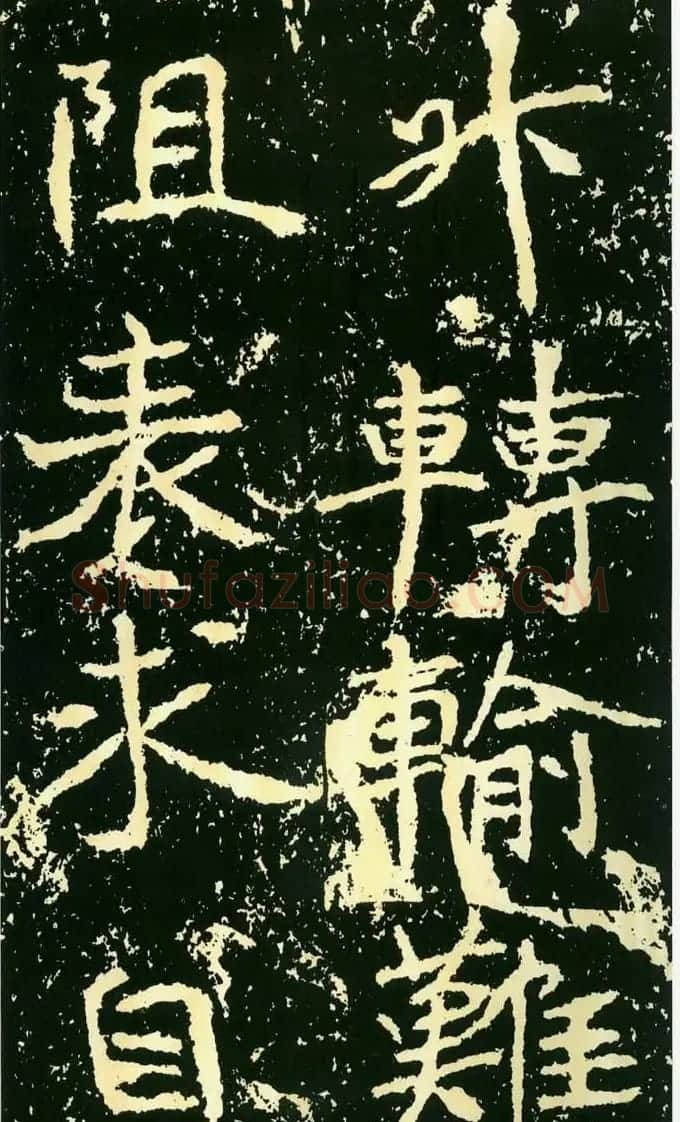 升轉輸難
阻表求自
Shufaziliao.COM